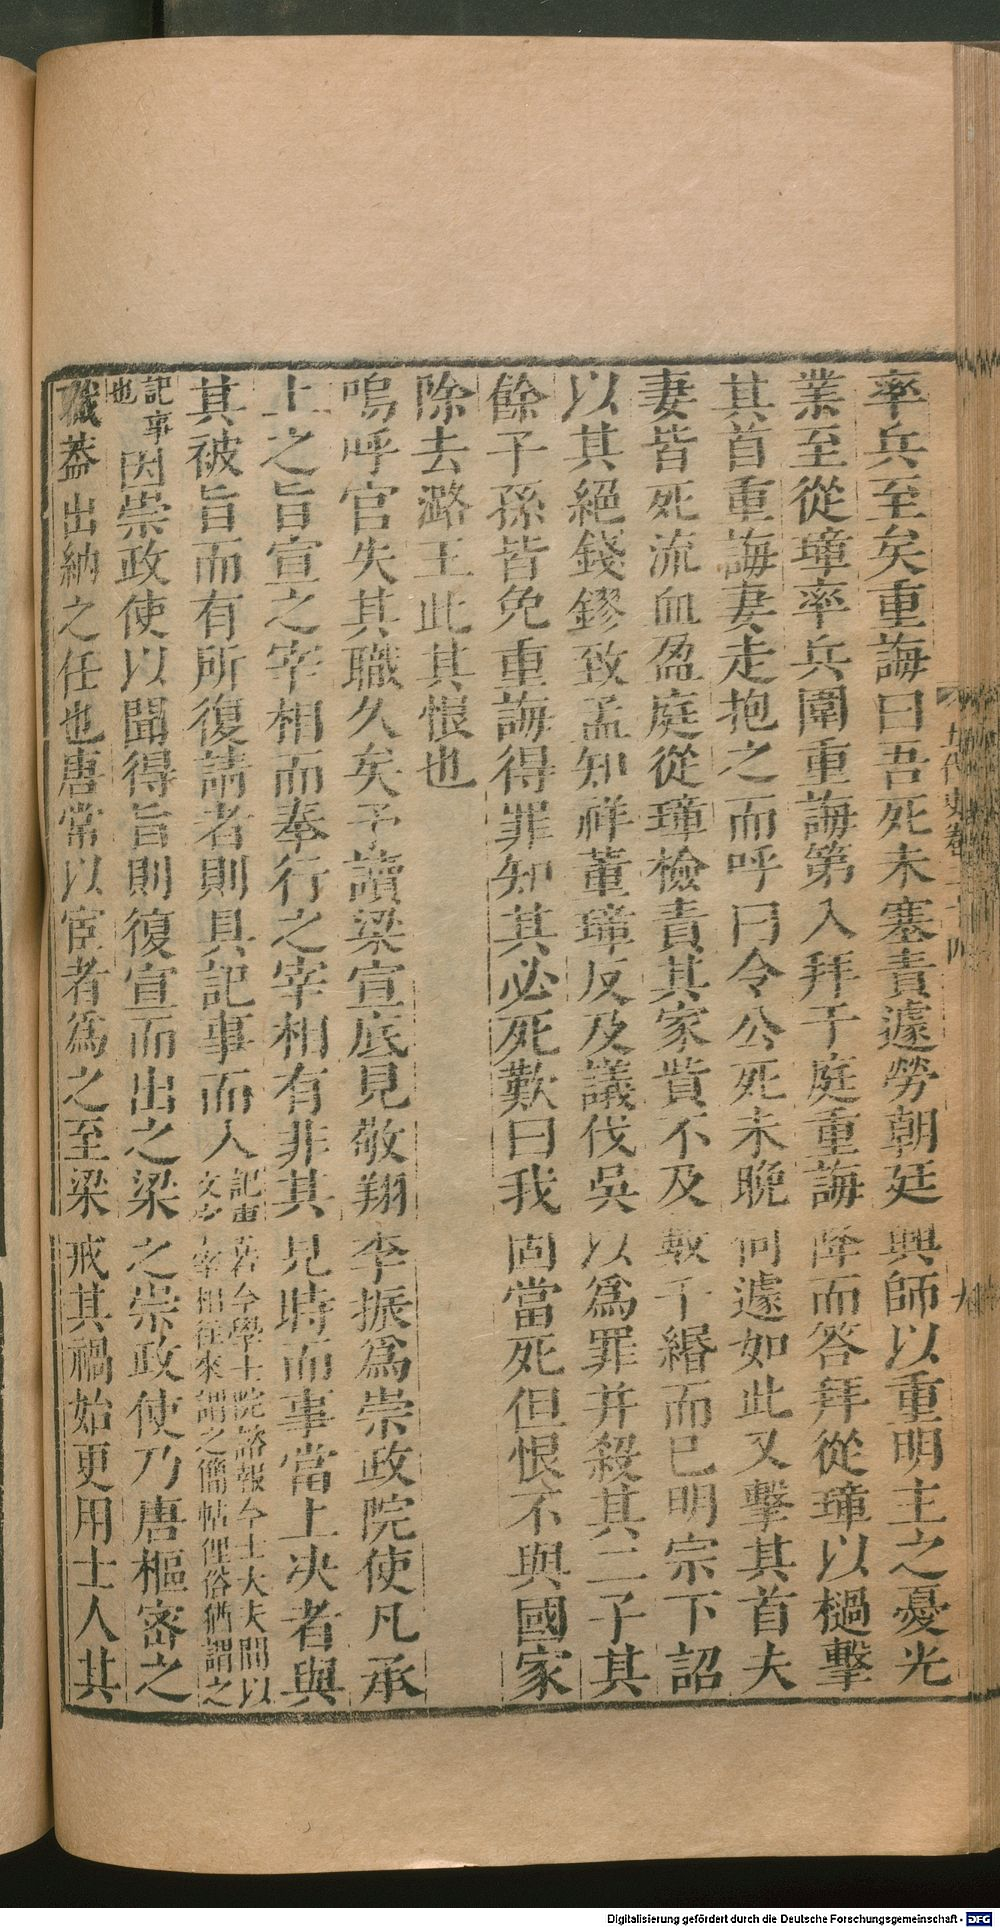 率兵至矣重誨曰吾死未塞責遽勞朝廷興師以重明主之憂光
業至從璋率兵圍重誨第入拜于庭重誨降而答拜從璋以檛擊
其首重誨妻走抱之而呼曰令公死未晚何遽如此又擊其首夫
妻皆死流血盈庭從璋檢責其家貲不及數千緡而已明宗下詔
以其絕錢鏐致孟知祥董璋反及議伐吳以爲罪并殺其二子其
餘子孫皆免重誨得罪知其必死歎曰我固當死但恨不與國家
除去潞王此其恨也
嗚呼官失其職久矣予讀梁宣底見敬翔李振爲崇政院使凡承
上之旨宣之宰相而奉行之宰相有非其見時而事當上决者與
其被旨而有所復請者則具記事而入
記事若今學士院諮報今士大夫間以
文字宰相往來謂之簡帖俚俗猶謂之
記事
也
因崇政使以聞得旨則復宣而出之梁之崇政使乃唐樞密之
職蓋出納之任也唐常以宦者爲之至梁戒其禍始更用士人其
五代史卷二十四
九
Digitalisierung gefördert durch die Deutsche Forschungsgemeinschaft - DFG